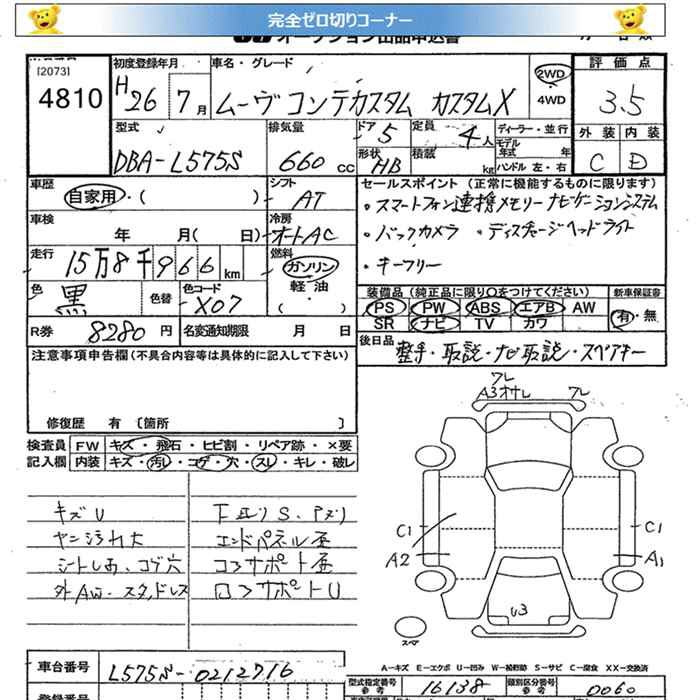 完全ゼロ切りコーナー
オークション出品申込書
[2073]
4810
初度登録年月
H26年7月
車名・グレード
ムーヴコンテカスタム カスタムX
2WD
4WD
評価点
3.5
外装 内装
C D
型式
DBA-L575S
排気量
660cc
ドア
5
定員
4人
形状
HB
積載
kg
ディーラー・並行
モデル年式 年
ハンドル 左・右
車歴
自家用・( )
シフト
AT
車検
年 月( 日)
冷房
オートAC
走行
15万8千966km
燃料
ガソリン
軽油
( )
色
黒
色替
色コード
X07
R券
8280円
名変通知期限 月 日
セールスポイント (正常に機能するものに限ります)
・スマートフォン連携メモリーナビゲーションシステム
・バックカメラ ・ディスチャージヘッドライト
・キーフリー
装備品(純正品に限り○をつけてください)
新車保証書
PS PW ABS エアB AW
SR ナビ TV カワ
有・無
後日品
整手・取説・ナビ取説・スペアキー
注意事項申告欄(不具合内容等は具体的に記入して下さい)
修復歴 有 〔箇所 〕
検査員記入欄
FW キズ・飛石・ヒビ割・リペア跡・×要
内装 キズ・汚レ・コゲ・穴・スレ・キレ・破レ
キズU
ヤニ汚れ大
シートしみ、コゲ穴
外AW・スタッドレス
下廻りS、
エンドパネル歪
コアサポート歪
ロアサポートU
ワレ
A3オサレ
ワレ
C1
A2
C1
A1
U3
スペア
A-キズ E-エクボ U-凹み W-補修跡 S-サビ C-腐食 XX-交換済
車台番号
L575S-0212716
型式指定番号
参考
16138
類別区分番号
参考
0060
登録番号